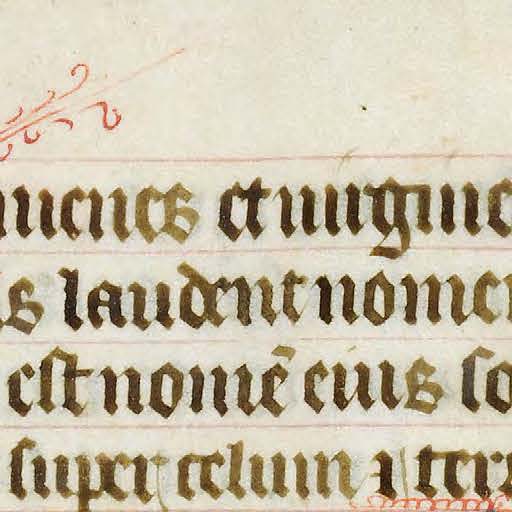 uuenes et uirgine
is laudent nomen
est nomē eius so
super celum ⁊ terr